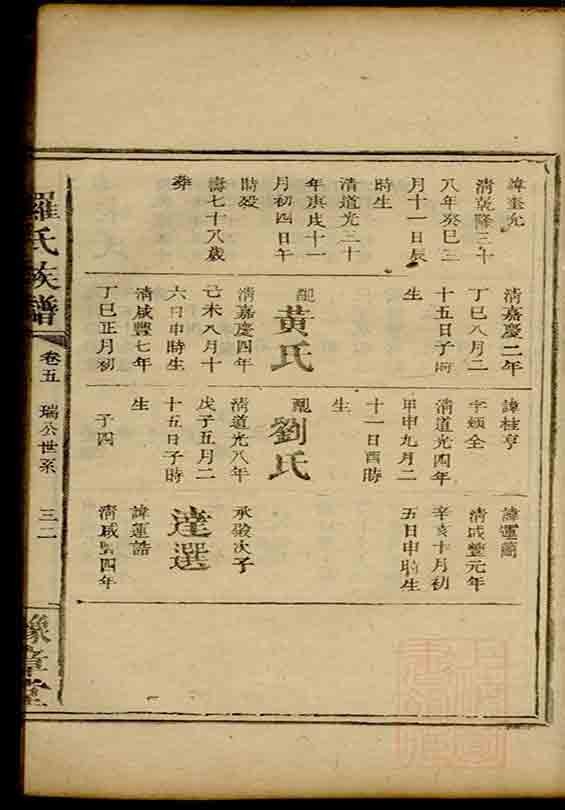 諱奎光
清乾隆三十
八年癸巳三
月十一日辰
時生
清道光三十
年庚戌十一
月初四日午
時歿
壽七十八歲
葬
清嘉慶二年
丁巳八月二
十五日子時
生
配
黃氏
清嘉慶四年
己未八月十
六日申時生
清咸豐七年
丁巳正月初
諱桂亨
字頻全
清道光四年
甲申九月二
十一日酉時
生
配
劉氏
清道光八年
戊子五月二
十五日子時
生
子四
諱運蘭
清咸豐元年
辛亥十月初
五日申時生
承緞次子
達選
諱運誥
清咸豐四年
羅氏族譜
卷五
瑞公世系
三二
豫章堂